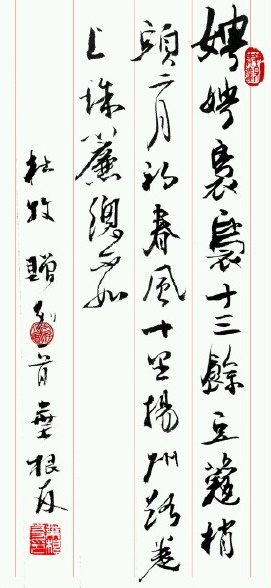 娉娉裊裊十三餘豆蔻梢
頭二月初春風十里揚州路卷
上珠簾總不如
杜牧 贈別一首